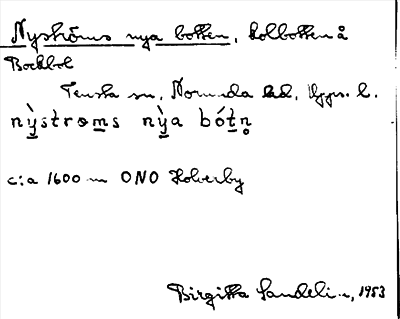 Nyströms nya botten, kolbotten å
Bockbol
Tensta sn, Norunda hd, Upps. l.
nỳstrɷms nỳa bótn̥
c:a 1600 m ONO Holverby
Birgitta Sandelin, 1953